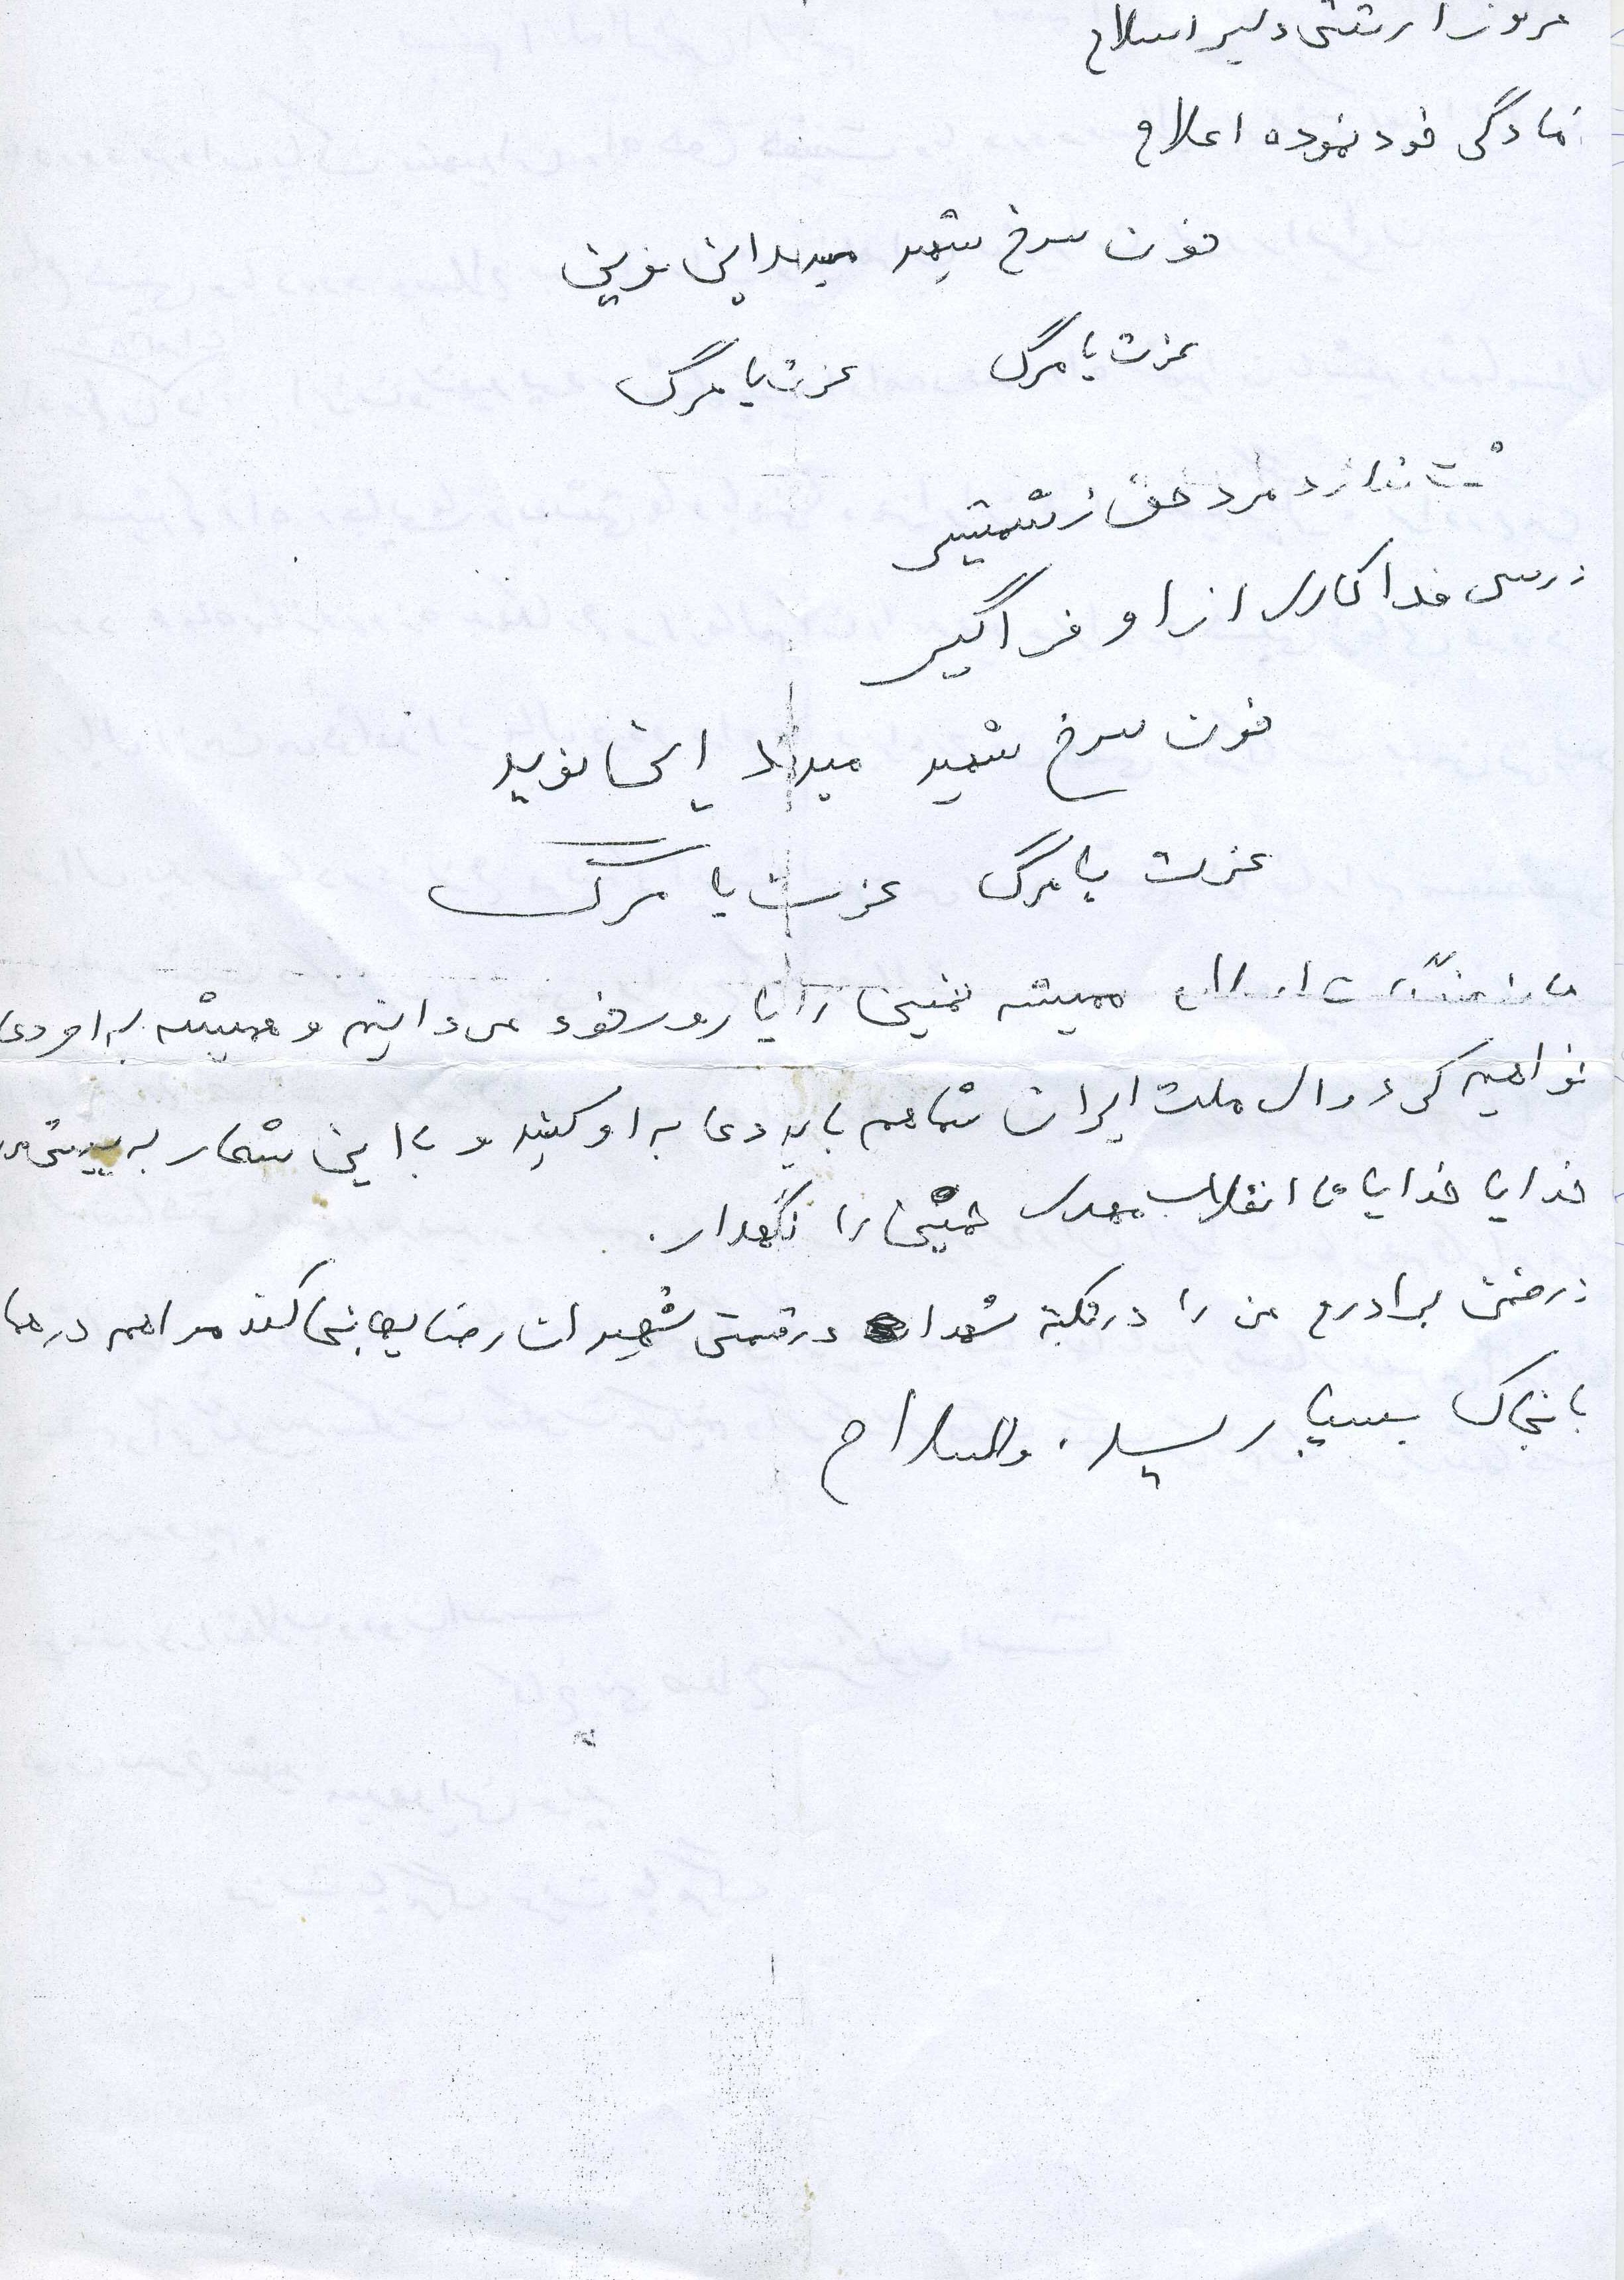 مروز ارتشی دلیر اسلام
مادگی خود نموده اعلام
خون سرخ شهید میدهد این نوین
عزت یا مرگ عزت یا مرگ
ندارد مرد حق ز شمشیر
درسی فداکاری از او فراگیر
خون سرخ شهید میدهد این نوید
عزت یا مرگ عزت یا مرگ
همیشه خمینی را یارو خود می دانیم و همیشه به او دعا
خواهیم کرد وال ملت ایران شما هم باید دعا به او کنید و با این شعار به پیش
خدایا خدایا تا انقلاب مهدی خمینی را نگهدار.
درضمن برادرم من را در شهدا درقسمتی شهیدان مرا هم در هما
بخاک بسپارید. والسلام